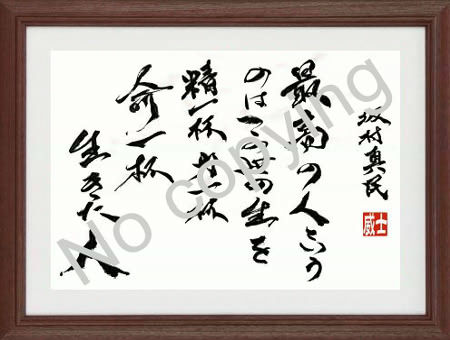 坂村真民
最高の人という
のはこの世の生を
精一杯力一杯
命一杯
生きた人
士威
No copying